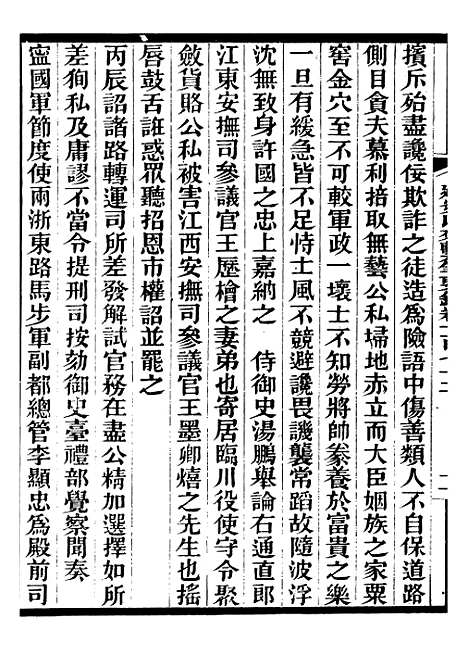 擯斥殆盡讒佞欺詐之徒造爲險語中傷善類人不自保道路
側目貪夫慕利掊取無藝公私埽地赤立而大臣姻族之家粟
窖金穴至不可較軍政一壞士不知勞將帥豢養於富貴之樂
一旦有緩急皆不足恃士風不競避讒畏譏襲常蹈故隨波浮
沈無致身許國之忠上嘉納之 侍御史湯鵬舉論右通直郎
江東安撫司參議官王歷檜之妻弟也寄居臨川役使守令聚
斂貨賂公私被害江西安撫司參議官王墨卿熺之先生也搖
唇鼓舌誑惑眾聽招恩市權詔並罷之
丙辰詔諸路轉運司所差發解試官務在盡公精加選擇如所
差狥私及庸謬不當令提刑司按劾御史臺禮部覺察聞奏
寍國軍節度使兩浙東路馬步軍副都總管李顯忠爲殿前司